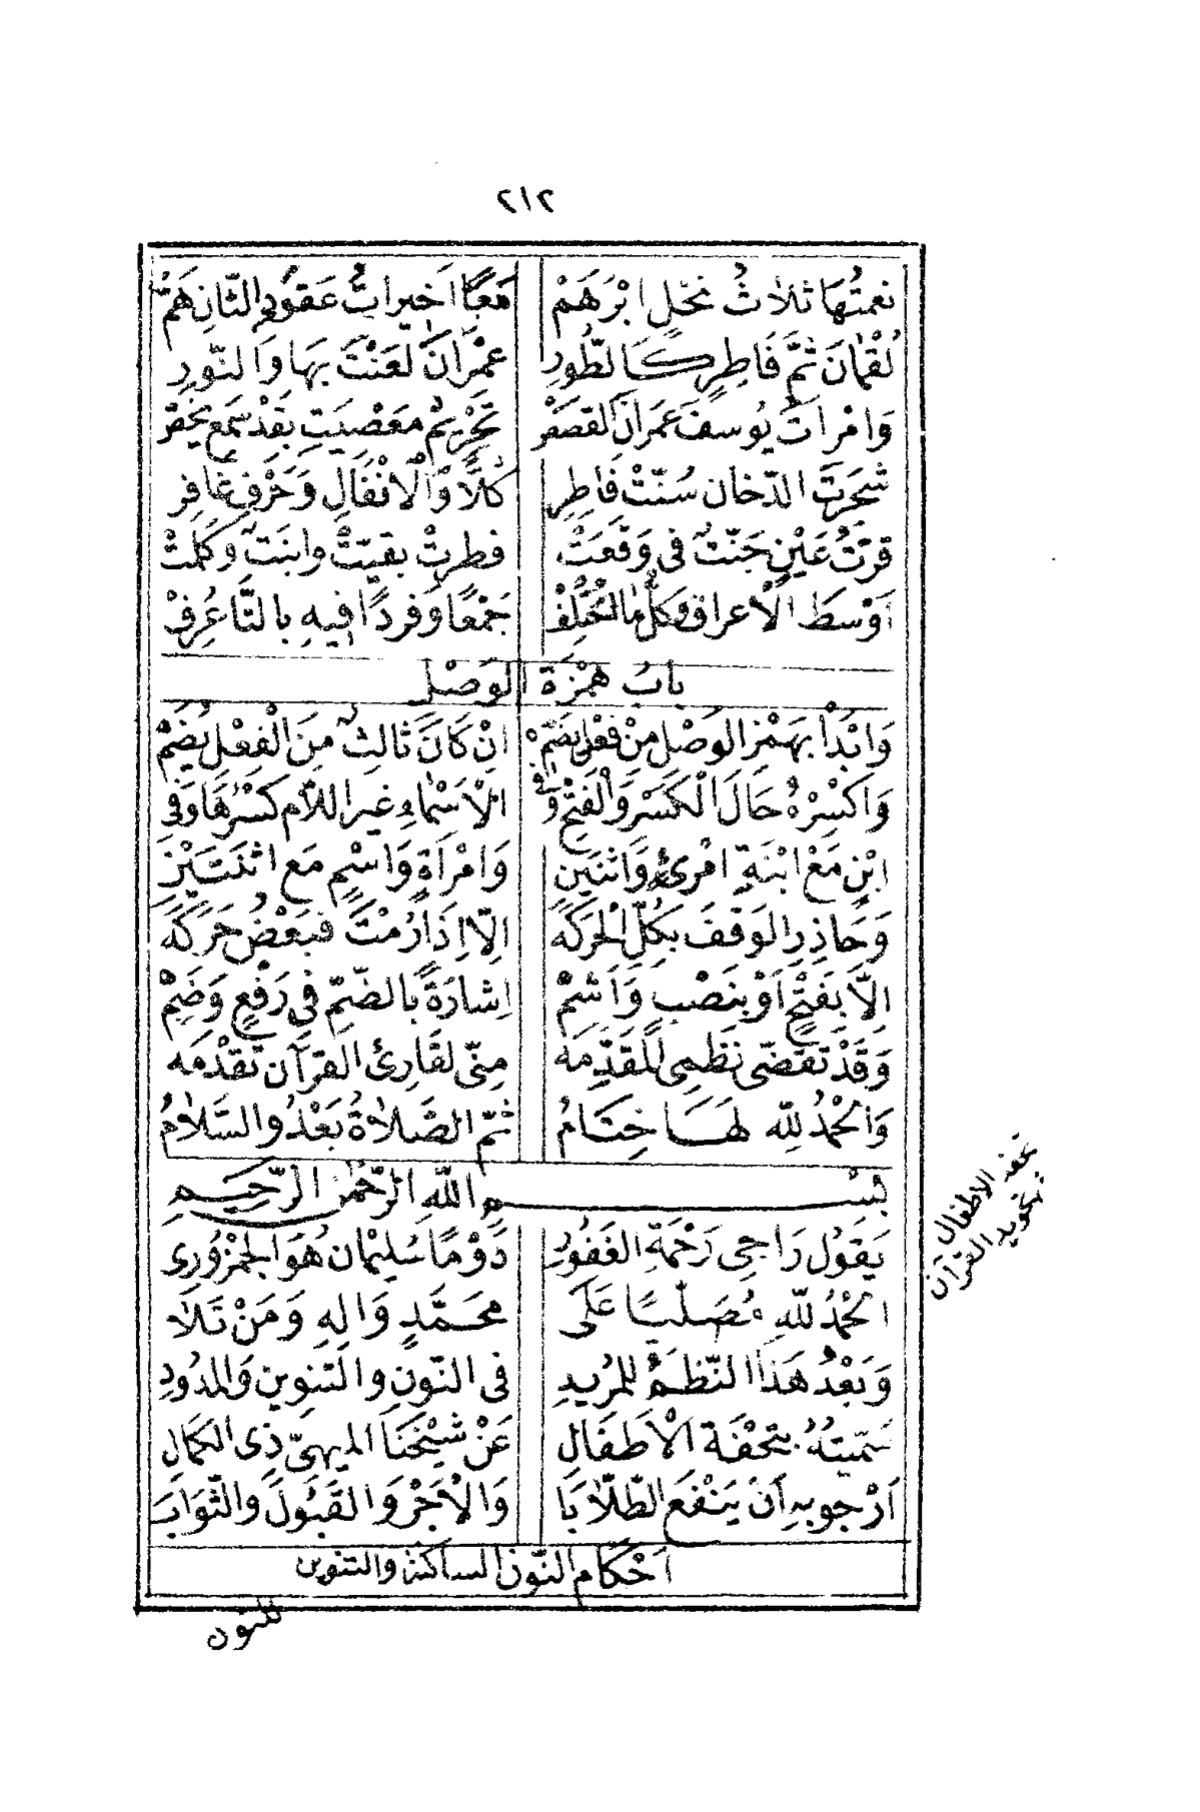 ٢١٢
نعمتُهَا ثلاثُ نخلٍ ابْرَهَمْ مَعًا اَخيراتُ عَقُودِ الثّانِ هَمّْ
لُقْمَانَ ثُمَّ فَاطِرٍ كَالطُّورِ عِمْرَانَ لَعْنَتَ بِهَا وَالنّورِ
وَامْرَاَتٌ يُوسفَ عِمرَانَ القصَصْ تَحْرِيمُ مَعْصِيَتِ بِقَدْ سَمِعْ يُخَصّْ
شَجَرَتَ الدّخانِ سُنّتْ فَاطِرِ كُلًّا وَّالْاَنْفَالِ وَحَرْفِ غَافِرِ
قرّتُ عَيْنٍ جَنّتٌ فى وَقَعَتْ فطرتْ بقيّتْ وابنَتٌ وَكَلِمَتْ
اَوْسَطَ الْاَعراف وَكُلُّ مَا اخْتُلِفْ جَمْعًا وَفردًا فِيهِ بِالتَّا عُرِفْ
بابُ هَمْزَةِ الوَصْلِ
وَابْدَأْ بِهَمْزِ الوَصْلِ مِنْ فِعْلٍ بِضَمّْ اِنْ كَانَ ثَالِثٌ مِنَ الْفِعْلِ يُضَمّْ
وَاكْسِرْهُ حَالَ الْكَسْرِ وَالْفَتْحِ وَفى الْاَسْمَاءِ غيرَ اللّامِ كَسْرُهَا وَفى
ابْنٍ مَعْ ابْنَةِ امْرِئٍ وَاثْنَينِ وَامْرَأةٍ وَاسْمٍ مَعَ اثْنَتَيْنِ
وَحَاذِرِ الوَقْفَ بِكُلِّ الْحَرَكَهْ اِلَّا اِذَا رُمْتَ فَبَعْضُ حَرَكَهْ
اِلَّا بِفَتْحٍ اَوْ بِنَصْبٍ وَاَشِمْ اِشارَةً بِالضّمِّ فِى رَفْعٍ وَضَمْ
وَقَدْ تَقَضّى نَظْمِى لِلْمُقَدِّمَهْ مِنّى لقَارِئِ القرآن تَقْدُمَهْ
وَالْحَمْدُ لِلّهِ لَهَا خِتَامُ ثمّ الصَّلَاةُ بَعْدُ وَالسَّلَامُ
بِسْمِ اللّهِ الرَّحْمٰنِ الرَّحِيمِ
تحفة الاطفال
بتجويد القرآن
يَقُولُ رَاجِى رَحْمَةِ الغَفُورِ دَوْمًا سُلِيْمَان هُوَ الجَمْزُورِى
الْحَمْدُ للّهِ مُصَلّيًا عَلَى محَمَّدٍ وَالِهِ وَمَنْ تَلَا
وَبَعْدُ هَذَا النّظمُ للمُرِيدِ فى النّونِ والتّنوِين وَالمدُودِ
سَمّيتُهُ بِتحْفَةِ الْأَطفَالِ عَنْ شَيْخِنَا الميهىِّ ذِى الكَمَالِ
اَرْجو بِهِ اَنْ يَنْفَعَ الطّلّابَا وَالْاَجْرَ وَالقَبُولَ وَالثّوَابَا
اَحْكَامِ النّون الساكنة والتنوين
للنون